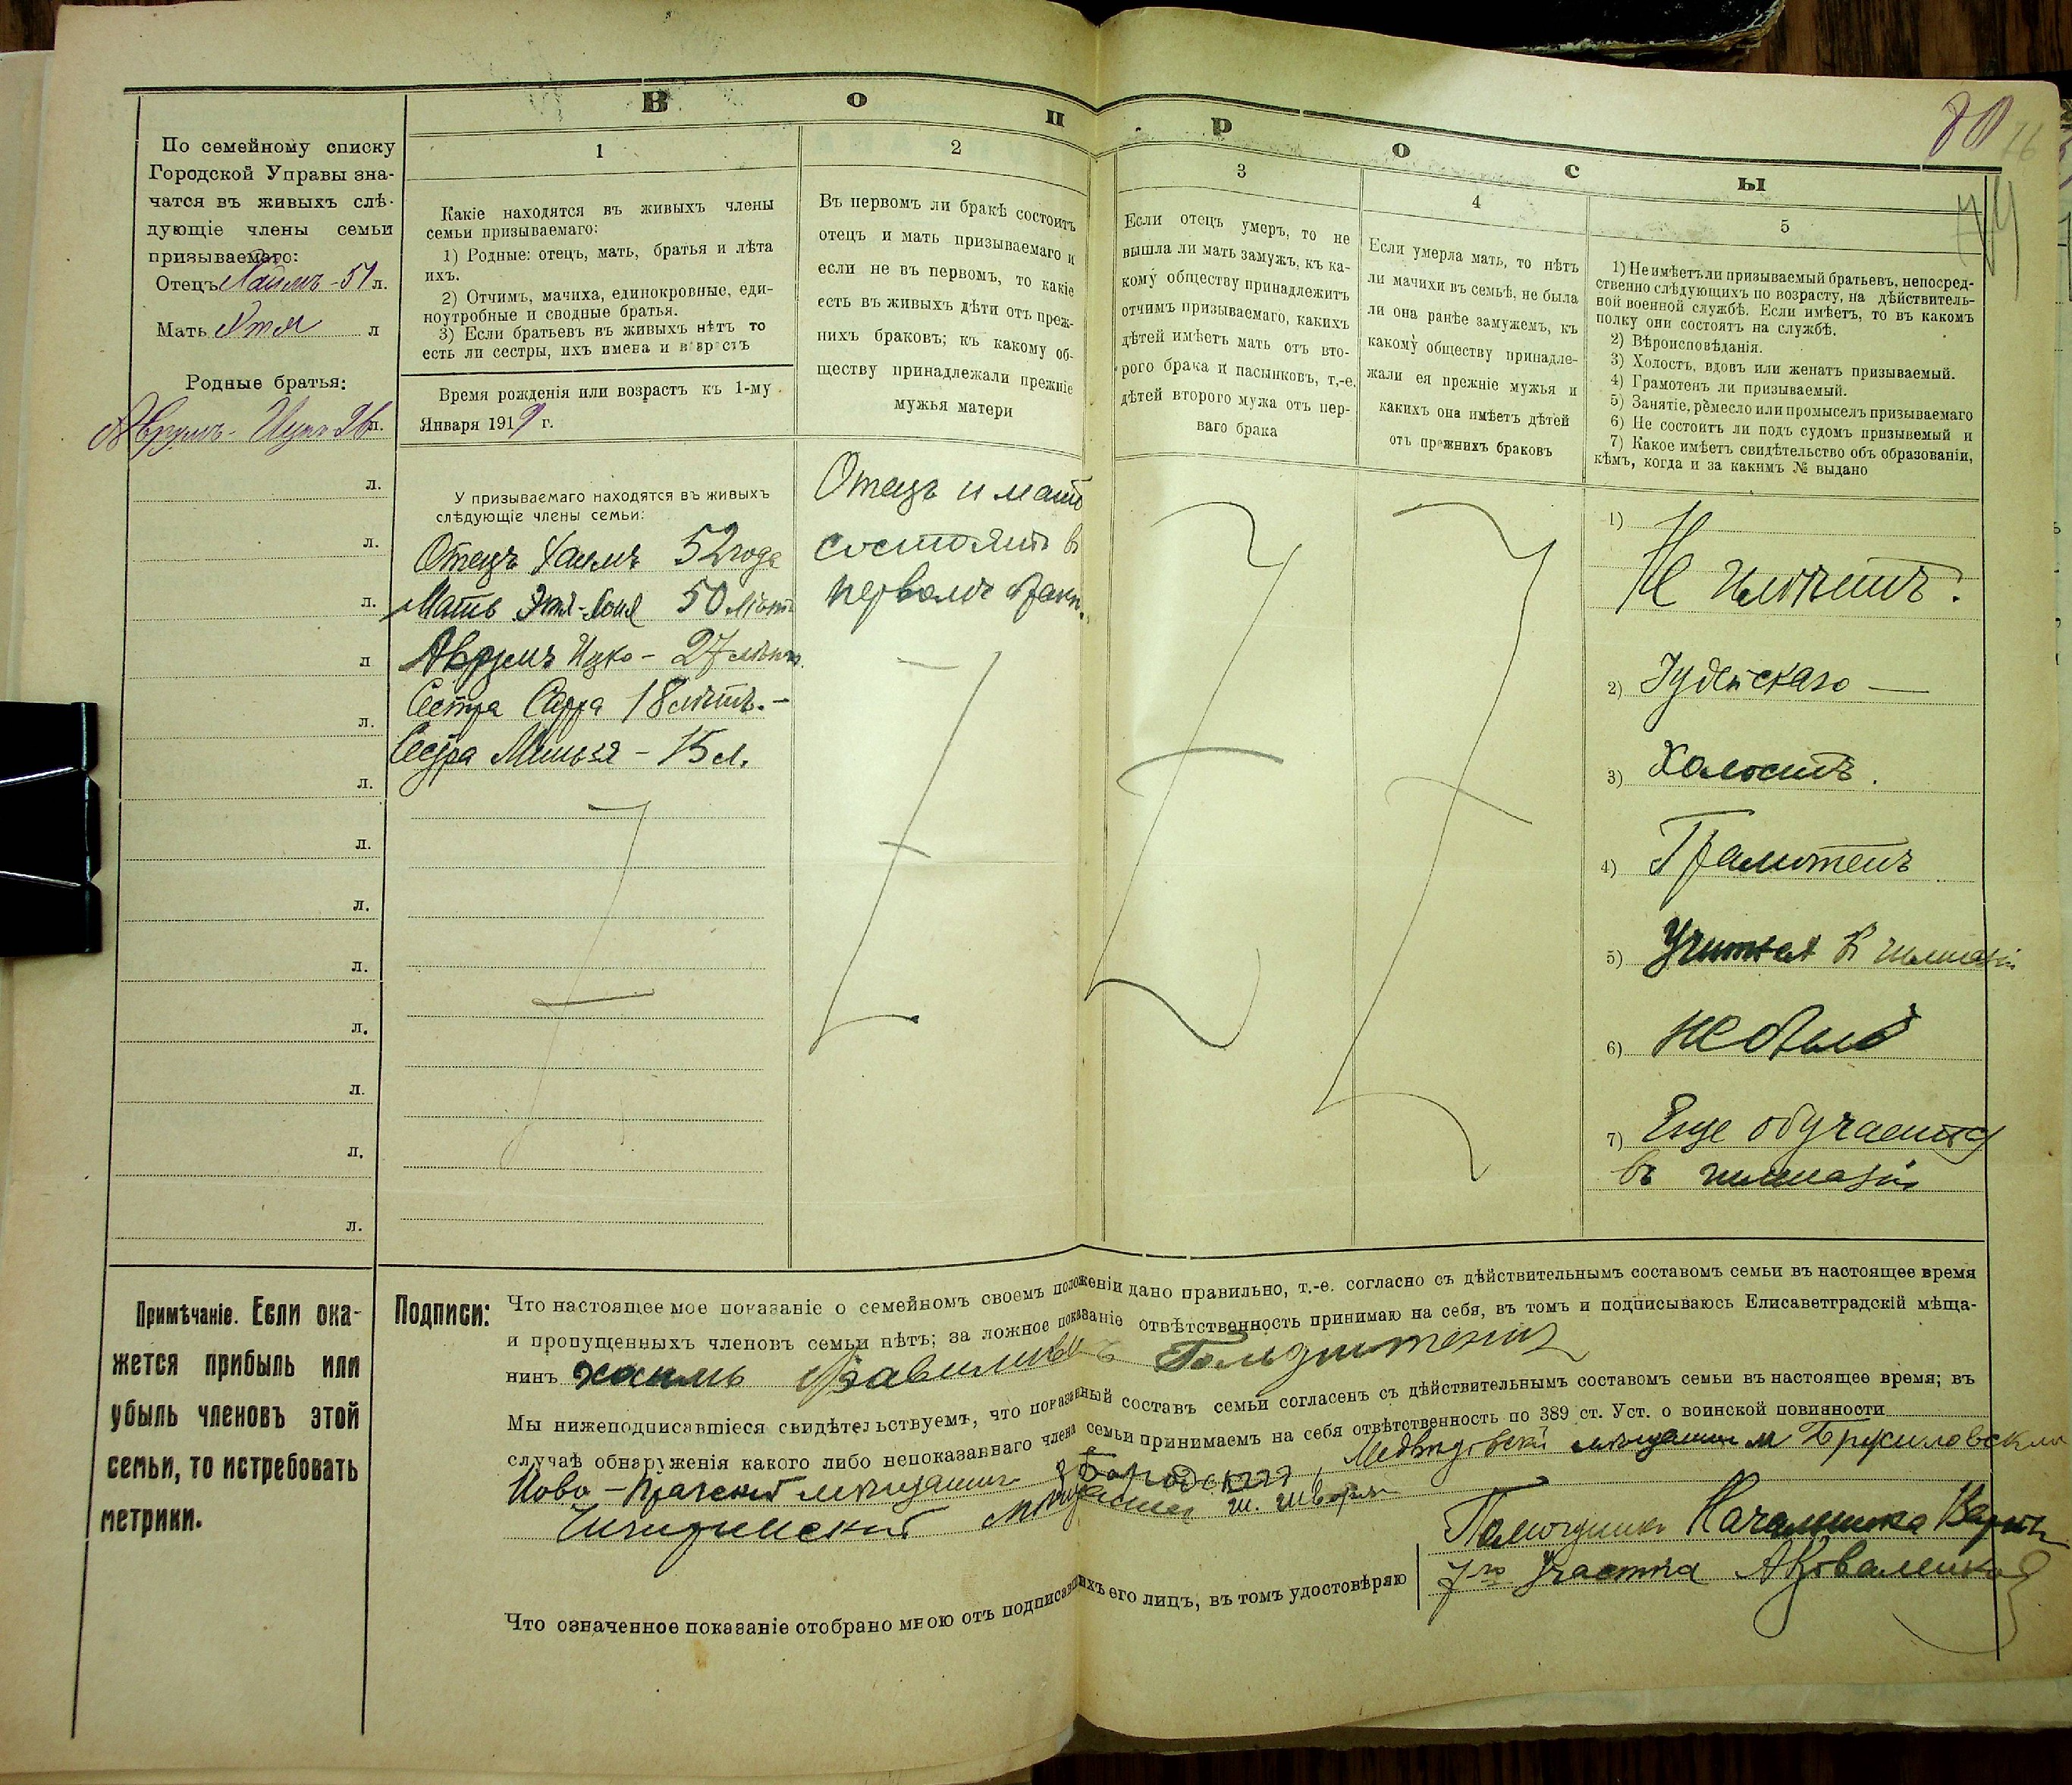 80
В о п р о с ы
По семейному списку
Городской Управы зна-
чатся въ живыхъ слѣ-
дующіе члены семьи
призываемаго:
Отецъ Хаимъ - 51 л.
Мать Этя л
Родные братья:
Аврумъ - Ицко 26 л.
л.
л.
л.
л
л.
л.
л.
л.
л.
л.
л.
л.
л.
1
Какіе находятся въ живыхъ члены
семьи призываемаго:
1) Родные: отецъ, мать, братья и лѣта
ихъ.
2) Отчимъ, мачиха, единокровные, еди-
ноутробные и сводные братья.
3) Если братьевъ въ живыхъ нѣтъ то
есть ли сестры, ихъ имена и возрастъ
Время рожденія или возрастъ къ 1-му
Января 1919 г.
У призываемаго находятся въ живыхъ
слѣдующіе члены семьи:
Отецъ Хаимъ 52 года
Мать Этя-Хоня 50 лѣтъ
Аврумъ Ицко - 27 лѣтъ.
Сестра Сарра 18 лѣтъ. -
Сестра Миньзя - 15 л.
2
Въ первомъ ли бракѣ состоитъ
отецъ и мать призываемаго и
если не въ первомъ, то какіе
есть въ живыхъ дѣти отъ преж-
нихъ браковъ; къ какому об-
ществу принадлежали прежніе
мужья матери
Отецъ и мать
состоятъ въ
первомъ бракѣ.
3
Если отецъ умеръ, то не
вышла ли мать замужъ, къ ка-
кому обществу принадлежитъ
отчимъ призываемаго, какихъ
дѣтей имѣетъ мать отъ вто-
рого брака и пасынковъ, т.-е.
дѣтей второго мужа отъ пер-
ваго брака
4
Если умерла мать, то нѣтъ
ли мачихи въ семьѣ, не была
ли она ранѣе замужемъ, къ
какому обществу принадле-
жали ея прежніе мужья и
какихъ она имѣетъ дѣтей
отъ прежнихъ браковъ
5
1) Не имѣетъ ли призываемый братьевъ, непосред-
ственно слѣдующихъ по возрасту, на дѣйствитель-
ной военной службѣ. Если имѣетъ, то въ какомъ
полку они состоятъ на службѣ.
2) Вѣроисповѣданія.
3) Холостъ, вдовъ или женатъ призываемый.
4) Грамотенъ ли призываемый.
5) Занятіе, ремесло или промыселъ призываемаго
6) Не состоитъ ли подъ судомъ призывемый и
7) Какое имѣетъ свидѣтельство объ образованіи,
кѣмъ, когда и за какимъ № выдано
1)
Не имѣетъ.
2) Іудейскаго —
3) Холостъ.
4) Грамотенъ
5) Учится в гимназіи
6) Не былъ
7) Еще обучается
въ гимназіи
Примѣчаніе. Если ока-
жется прибыль или
убыль членовъ этой
семьи, то истребовать
метрики.
Подписи:
Что настоящее мое показаніе о семейномъ своемъ положеніи дано правильно, т.-е. согласно съ дѣйствительнымъ составомъ семьи въ настоящее время
и пропущенныхъ членовъ семьи нѣтъ; за ложное показаніе отвѣтственность принимаю на себя, въ томъ и подписываюсь Елисаветградскій мѣща-
нинъ Хаимъ
Мы нижеподписавшіеся свидѣтельствуемъ, что показанный составъ семьи согласенъ съ дѣйствительнымъ составомъ семьи въ настоящее время; въ
случаѣ обнаруженія какого либо непоказаннаго члена семьи принимаемъ на себя отвѣтственность по 389 ст. Уст. о воинской повинности
Ново-Пражскій мѣщанинъ Бродская, Медвѣдовскій мѣщанинъ М Брусиловскій
Чигиринскій мѣщанинъ
Что означенное показаніе отобрано мною отъ подписавшихъ его лицъ, въ томъ удостовѣряю
Помощникъ Начальника
7го Участка